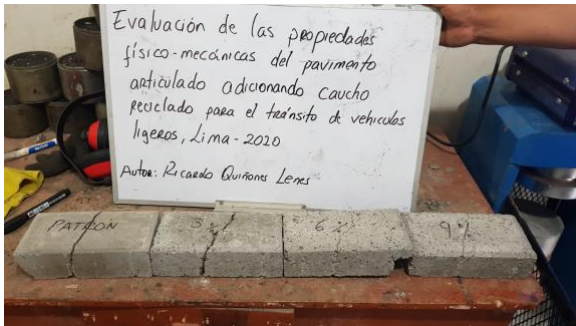 Evaluación de las propiedades
físico-mecánicas del pavimento
articulado adicionando caucho
reciclado para el tránsito de vehículos
ligeros, Lima-2020
Autor: Ricardo Quiñones Lenes
PATRON 3% 6% 9%